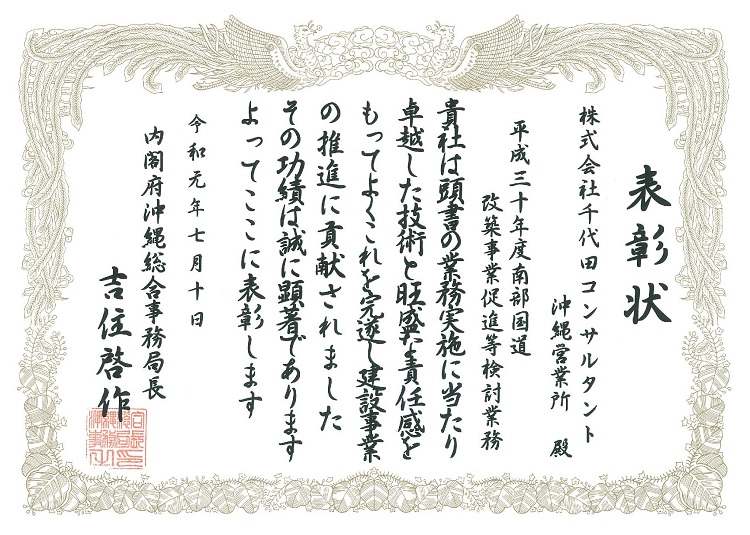 表彰状
株式会社千代田コンサルタント
沖縄営業所 殿
平成三十年度南部国道
改築事業促進等検討業務
貴社は頭書の業務実施に当たり
卓越した技術と旺盛な責任感を
もってよくこれを完遂し建設事業
の推進に貢献されました
その功績は誠に顕著であります
よってここに表彰します
令和元年七月十日
内閣府沖縄総合事務局長
吉住啓作